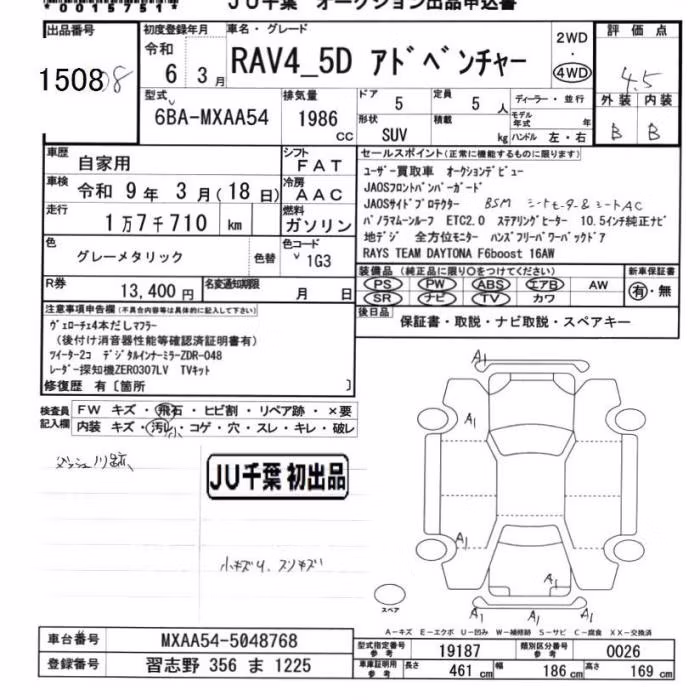 *00157511*
JU千葉 オークション出品申込書
出品番号
15088
初度登録年月
令和
6 3月
車名・グレード
RAV4_5D アドベンチャー
2WD
・
4WD
評価点
4.5
外装 内装
B B
型式
6BA-MXAA54
排気量
1986
CC
ドア
5
定員
5 人
ディーラー・並行
形状
SUV
積載
kg
モデル年式 年
ハンドル 左・右
車歴
自家用
シフト
FAT
車検
令和 9年 3月(18日)
冷房
AAC
走行
1万7千710 km
燃料
ガソリン
色
グレーメタリック
色替
色コード
1G3
R券
13,400 円
名変通知期限
月 日
セールスポイント(正常に機能するものに限ります)
ユーザー買取車 オークションデビュー
JAOSフロントバンパーガード
JAOSサイドプロテクター BSM シートヒーター&シートAC
パノラマムーンルーフ ETC2.0 ステアリングヒーター 10.5インチ純正ナビ
地デジ 全方位モニター ハンズフリーパワーバックドア
RAYS TEAM DAYTONA F6boost 16AW
装備品(純正品に限り○をつけてください)
PS PW ABS エアB AW
SR ナビ TV カワ
新車保証書
有・無
後日品
保証書・取説・ナビ取説・スペアキー
注意事項申告欄(不具合内容等は具体的に記入して下さい)
ヴェローチェ4本だしマフラー
(後付け消音器性能等確認済証明書有)
ツイーター2コ デジタルインナーミラーZDR-048
レーダー探知機ZERO307LV TVキット
修復歴 有〔箇所 〕
検査員記入欄
FW キズ・飛石・ヒビ割・リペア跡・×要
内装 キズ・汚レ小・コゲ・穴・スレ・キレ・破レ
JU千葉 初出品
小キズU、スリキズ
A1
A1
A1
A1
A1
A1
A1
スペア
A-キズ E-エクボ U-凹み W-補修跡 S-サビ C-腐食 XX-交換済
車台番号
MXAA54-5048768
登録番号
習志野 356 ま 1225
型式指定番号
参考
19187
類別区分番号
参考
0026
車庫証明用
参考
長さ 461 cm 幅 186 cm 高さ 169 cm